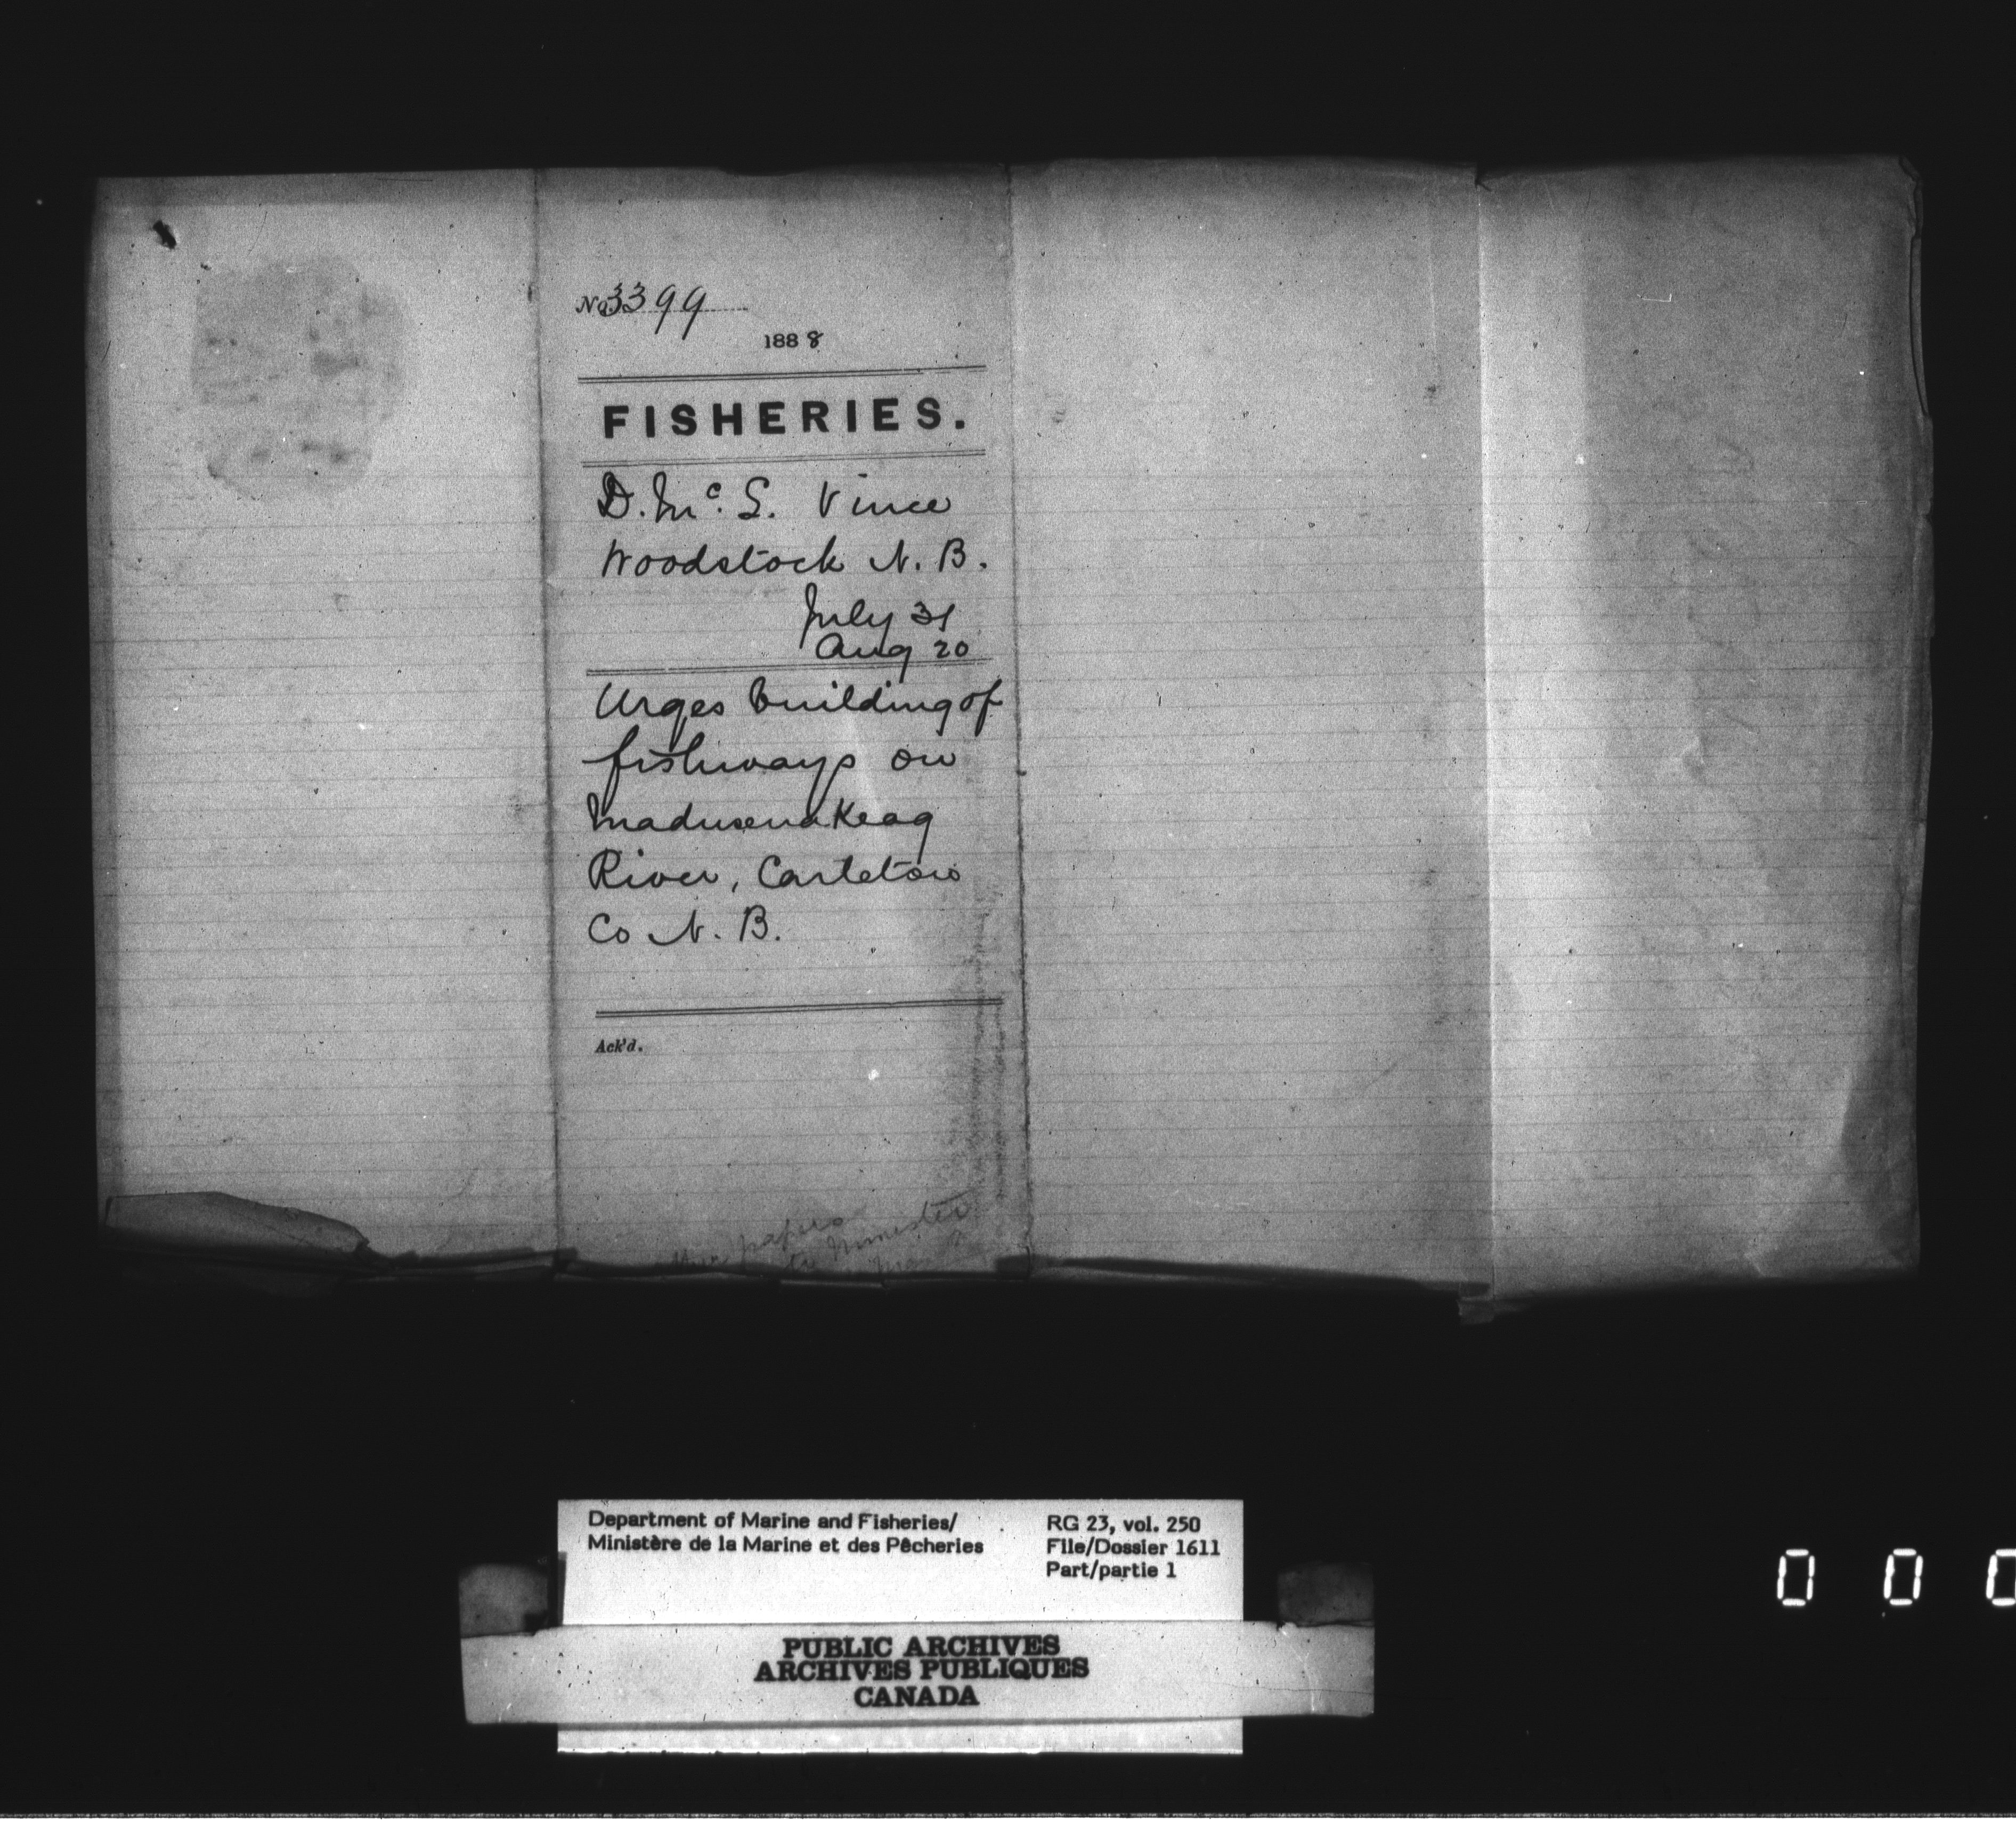 No. 3399
1888
FISHERIES.
D. Mc. S. Vince
Woodstock N. B.
July 31
Aug 20
Urges building of
fishways on
Maduxenakeag
River, Carleton
Co N. B.
Ack'd.
papers
to Minister
Department of Marine and Fisheries/
Ministère de la Marine et des Pêcheries
RG 23, vol. 250
File/Dossier 1611
Part/partie 1
PUBLIC ARCHIVES
ARCHIVES PUBLIQUES
CANADA
0 0 0